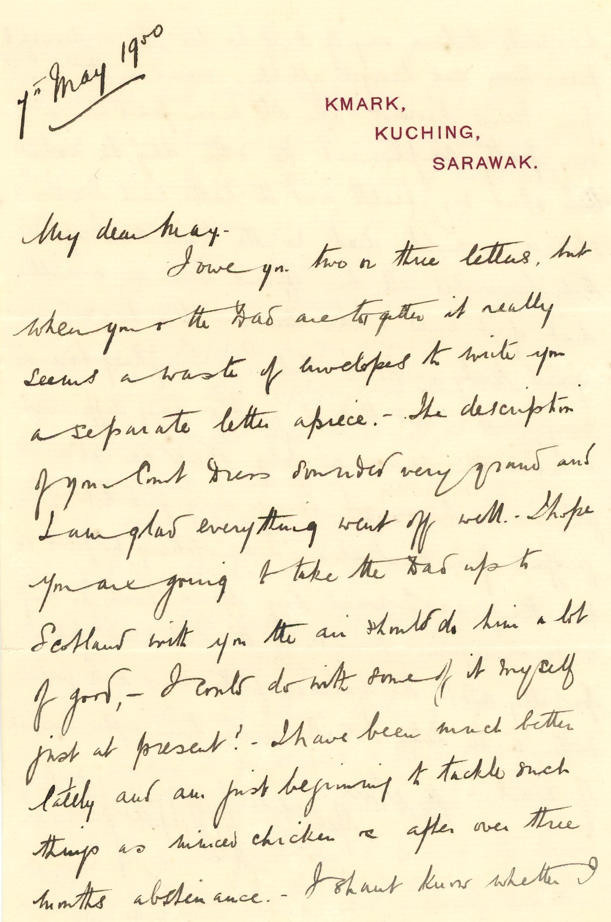 7th May 1900
KMARK,
KUCHING,
SARAWAK.
My dear May-
I owe you two or three letters, but
when you & the Dad are together it really
seems a waste of envelopes to write you
a separate letter apiece.- The description
of your Court Dress sounded very grand and
I am glad everything went off well.- I hope
you are going to take the Dad up to
Scotland with you the air should do him a lot
of good,- I could do with some of it myself
just at present!- I have been much better
lately and am just beginning to tackle such
things as minced chicken &c after over three
months abstinance.- I shant know whether I